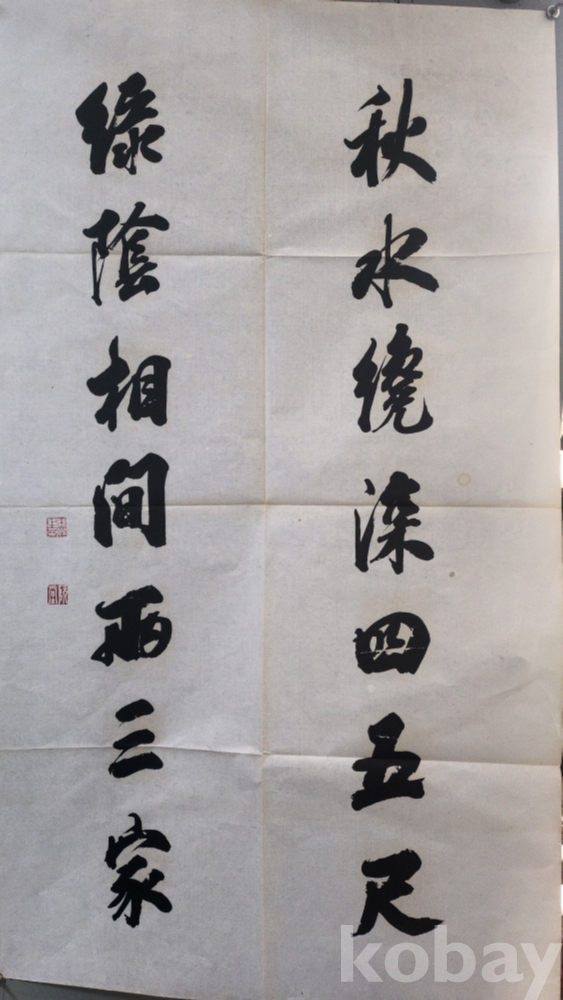 秋水纔深四五尺
綠陰相間兩三家
kobay